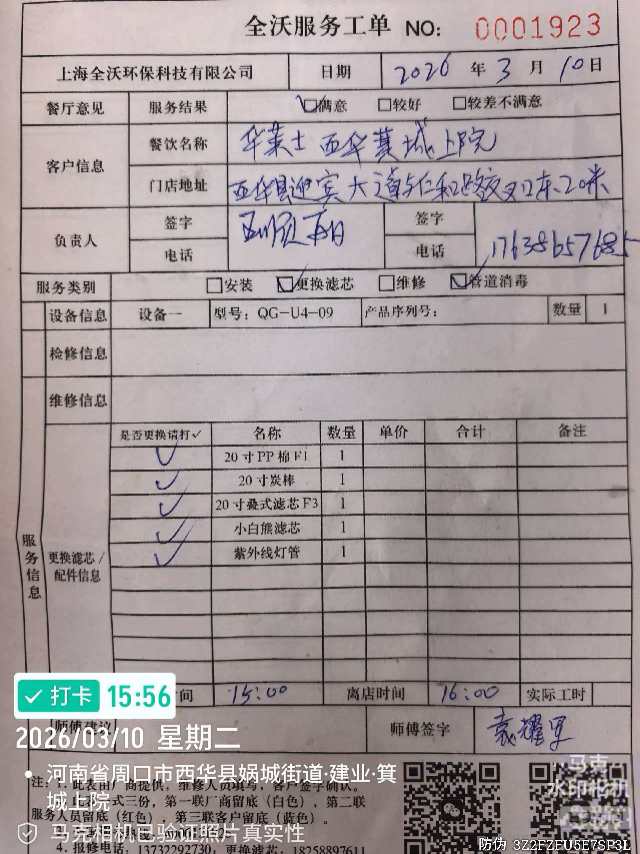 全沃服务工单 NO: 0001923
上海全沃环保科技有限公司 日期 2026年3月10日
餐厅意见 服务结果 ☑满意 □较好 □较差不满意
客户信息 餐饮名称 华莱士 西华箕城上院
门店地址 西华县迎宾大道与仁和路交叉口东20米
负责人 签字 签字
电话 电话 17638657685
服务类别 □安装 ☑更换滤芯 □维修 ☑管道消毒
设备信息 设备一 型号: QG-U4-09 产品序列号: 数量 1
检修信息
维修信息
服务信息 更换滤芯/配件信息
是否更换请打✓ 名称 数量 单价 合计 备注
✓ 20寸PP棉F1 1
✓ 20寸炭棒 1
✓ 20寸叠式滤芯F3 1
✓ 小白熊滤芯 1
✓ 紫外线灯管 1
时间 15:00 离店时间 16:00 实际工时
师傅建议 师傅签字 袁耀军
✓打卡 15:56
2026/03/10 星期二
河南省周口市西华县娲城街道·建业·箕城上院
马克相机已验证照片真实性
注:1.
厂商提供,维修人员填写,客户签字确认。
式三份,第一联厂商留底(白色),第二联
服务人员留底(红色),第三联客户留底(蓝色)。
4.报修电话:13732292730, 18258897611
马克
水印相机
防伪 3Z2FZFU5E7SP3L